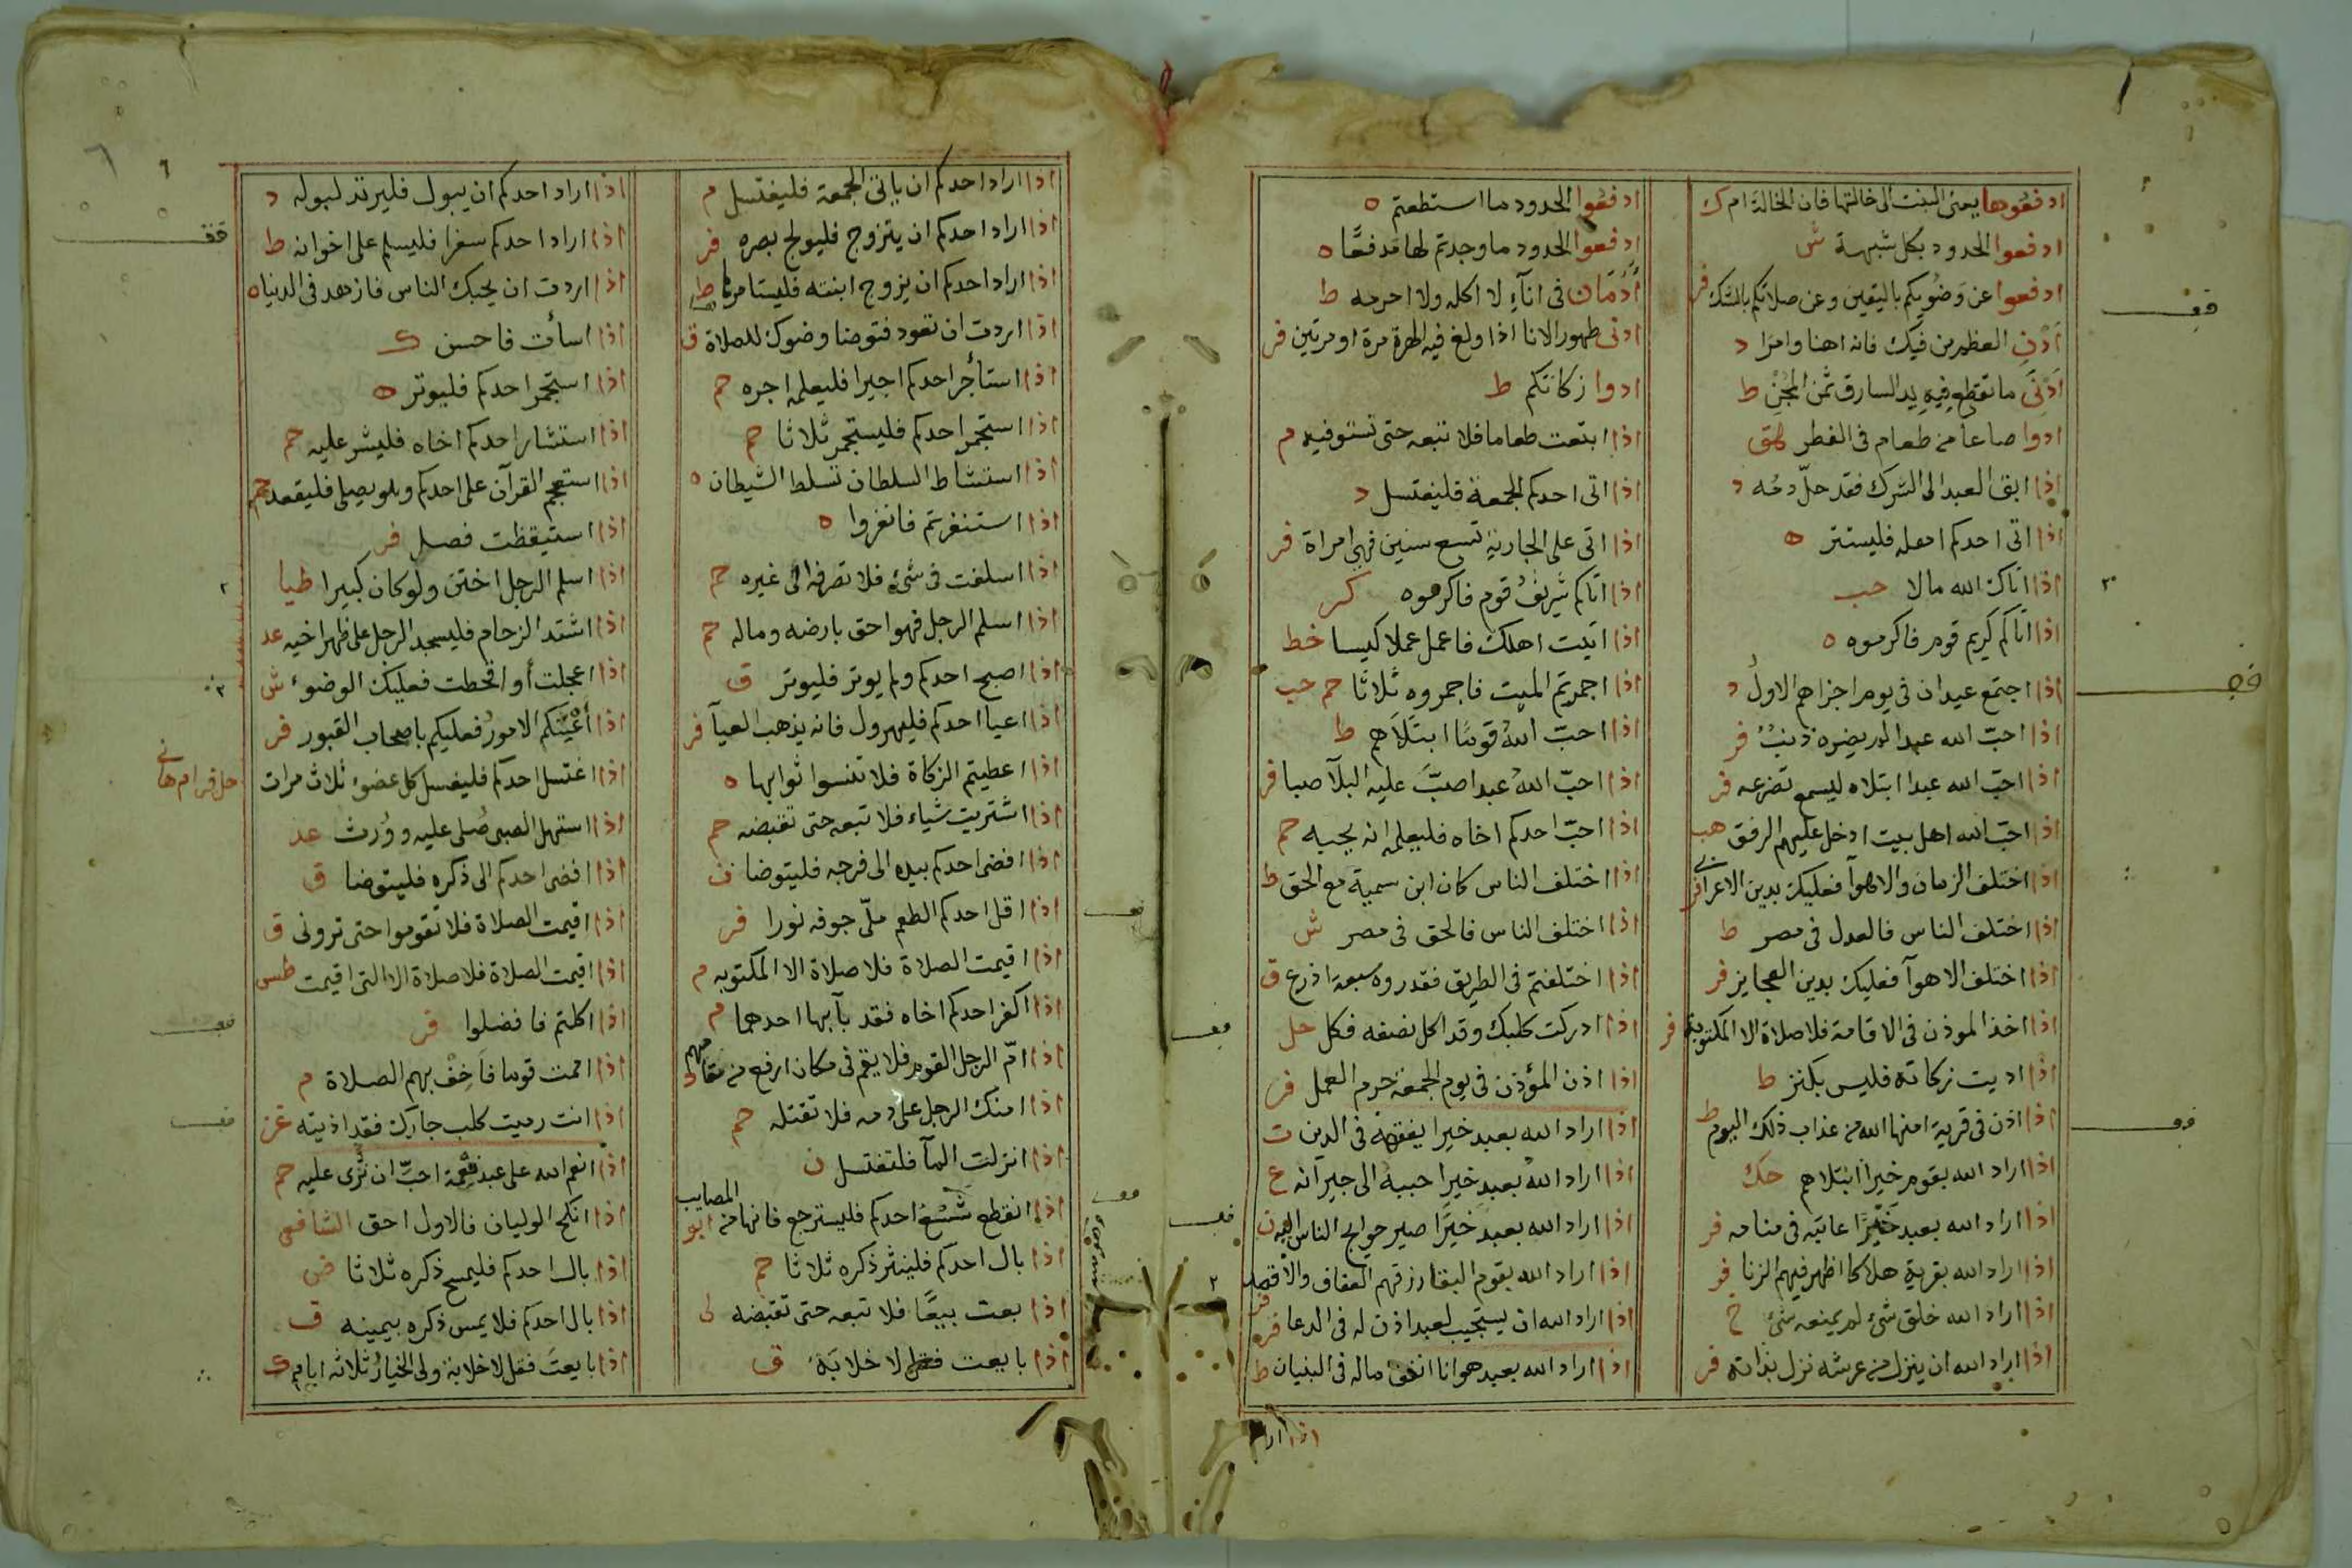 ادفعوها يعنى البنت الى خالتها فان الخالة ام ك
ادفعوا الحدود بكل شبهة ش
ادفعوا عن وضوئكم باليقين وعن صلاتكم بالشك فر
ادن العظم من فيك فانه اهنا وامرا د
ادنى ما تقطع فيه يد السارق ثمن المجن ط
ادوا صاعا من طعام فى الفطر هق
اذا ابق العبد الى الشرك فقد حل دمه د
اذا اتى احدكم اهله فليستتر ه
اذا اتاك الله مالا حب
اذا اتاكم كريم قوم فاكرموه ه
اذا اجتمع عيدان فى يوم اجزاهم الاول د
اذا احب الله عبدا لم يضره ذنب فر
اذا احب الله عبدا ابتلاه ليسمع تضرعه فر
اذا احب الله اهل بيت ادخل عليهم الرفق هب
اذا اختلف الزمان والاهوآ فعليك بدين الاعرابى فر
اذا اختلف الناس فالعدل فى مصر ط
اذا اختلف الاهوآ فعليك بدين العجايز فر
اذا اخذ الموذن فى الاقامة فلا صلاة الا المكتوبة فر
اذا اديت زكاته فليس بكنز ط
اذا اذن فى قرية امنها الله من عذاب ذلك اليوم ط
اذا اراد الله بقوم خيرا ابتلاهم حك
اذا اراد الله بعبد خيرا عاتبه فى منامه فر
اذا اراد الله بقرية هلاكا اظهر فيهم الزنا فر
اذا اراد الله خلق شئ لم يمنعه شئ م
اذا اراد الله ان ينزل من عرشه نزل بذاته فر
ادفعوا الحدود ما استطعتم ه
ادفعوا الحدود ما وجدتم لها مدفعا ه
أدمان فى انآء لا اكله ولا احرمه ط
ادنى طهور الانا اذا ولغ فيه الهرة مرة او مرتين فر
ادوا زكاتكم ط
اذا ابتعت طعاما فلا تبعه حتى تستوفيه م
اذا اتى احدكم الجمعة فليغتسل د
اذا اتى على الجارية تسع سنين فهى امراة فر
اذا اتاكم شريف قوم فاكرموه كر
اذا اتيت اهلك فاعمل عملا كيسا خط
اذا اجمرتم الميت فاجمروه ثلاثا حم حب
اذا احب الله قوما ابتلاهم ط
اذا احب الله عبدا صب عليه البلآ صبا فر
اذا احب احدكم اخاه فليعلمه انه يحبه حم
اذا اختلف الناس كان ابن سمية مع الحق ط
اذا اختلف الناس فالحق فى مصر ش
اذا اختلفتم فى الطريق فقدروه سبعة اذرع ق
اذا ادركت كلبك وقد اكل نصفه فكل حل
اذا اذن المؤذن فى يوم الجمعة حرم العمل فر
اذا اراد الله بعبد خيرا يفقهه فى الدين ت
اذا اراد الله بعبد خيرا حببه الى جيرانه ع
اذا اراد الله بعبد خيرا صير حوايج الناس اليه ن
اذا اراد الله بقوم البقا رزقهم العفاف والاقتصاد
اذا اراد الله ان يستجيب لعبد اذن له فى الدعا فر
اذا اراد الله بعبد هوانا انفق ماله فى البنيان ط
اذا ارا
اذا اراد احدكم ان ياتى الجمعة فليغتسل م
اذا اراد احدكم ان يتزوج فليولج بصره فر
اذا اراد احدكم ان يزوج ابنته فليستامرها ط
اذا اردت ان تعود فتوضا وضوك للصلاة ق
اذا استأجر احدكم اجيرا فليعلمه اجره حم
اذا استجمر احدكم فليستجمر ثلاثا حم
اذا استشاط السلطان تسلط الشيطان ه
اذا استنفرتم فانفروا ه
اذا اسلفت فى شئ فلا تصرفه الى غيره حم
اذا اسلم الرجل فهو احق بارضه وماله حم
اذا اصبح احدكم ولم يوتر فليوتر ق
اذا اعيآ احدكم فليهرول فانه يذهب العيآ فر
اذا اعطيتم الزكاة فلا تنسوا ثوابها ه
اذا اشتريت شياء فلا تبعه حتى تقبضه حم
اذا افضى احدكم بيده الى فرجه فليتوضا ن
اذا اقل احدكم الطعم ملى جوفه نورا فر
اذا اقيمت الصلاة فلا صلاة الا المكتوبه م
اذا اكفر احدكم اخاه فقد بآبها احدهما م
اذا ام الرجل القوم فلا يقم فى مكان ارفع من مقامهم
اذا امنك الرجل على دمه فلا تقتله حم
اذا انزلت المآ فلتغتسل ن
اذا انقطع شسع احدكم فليسترجع فانها من المصايب ابو
اذا بال احدكم فلينثر ذكره ثلاثا حم
اذا بعت بيعا فلا تبعه حتى تقبضه
اذا بايعت فقل لا خلابة ق
اذا اراد احدكم ان يبول فليرتد لبوله د
اذا اراد احدكم سفرا فليسلم على اخوانه ط
اذا اردت ان يحبك الناس فازهد فى الدنيا ه
اذا اسأت فاحسن ك
اذا استجمر احدكم فليوتر ه
اذا استشار احدكم اخاه فليشر عليه حم
اذا استعجم القرآن على احدكم وهو يصلى فليقعد حم
اذا استيقظت فصل فر
اذا اسلم الرجل اختتن ولو كان كبيرا طيا
اذا اشتد الزحام فليسجد الرجل على ظهر اخيه عد
اذا اعجلت أو اقحطت فعليك الوضوء ش
اذا أعيتكم الامور فعليكم باصحاب القبور فر
اذا اغتسل احدكم فليغسل كل عضو ثلاث مرات
حل فر ام هانى
اذا استهل الصبى صلى عليه وورث عد
اذا افضى احدكم الى ذكره فليتوضا ق
اذا اقيمت الصلاة فلا تقوموا حتى ترونى ق
اذا اقيمت الصلاة فلا صلاة الا التى اقيمت طس
اذا اكلتم فافضلوا فر
اذا اممت قوما فاخف بهم الصلاة م
اذا انت رميت كلب جارك فقد اذيته
اذا انعم الله على عبد نعمة احب ان ترى عليه حم
اذا انكح الوليان فالاول احق الشافعى
اذا بال احدكم فليمسح ذكره ثلاثا ض
اذا بال احدكم فلا يمس ذكره بيمينه ق
اذا بايعت فقل لا خلابة ولى الخيار ثلاثه ايام ك